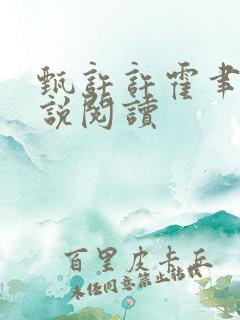 甄許許霍聿
說閱讀
百里皮卡丘
未经同意禁止转载